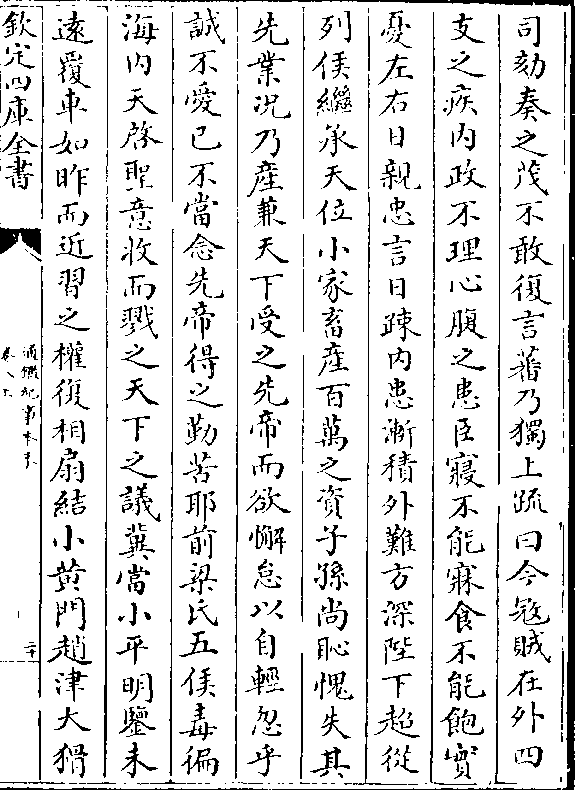 司劾奏之茂不敢復言蕃乃獨上疏曰今冦賊在外四
支之疾内政不理心腹之患臣寢不能寐食不能飽實
憂左右日親忠言日疎内患漸積外難方深陛下超從
列侯繼承天位小家畜産百萬之資子孫尚恥愧失其
先業況乃産兼天下受之先帝而欲懈怠以自輕忽乎
誠不愛己不當念先帝得之勤苦耶前梁氏五侯毒徧
海内天啓聖意收而戮之天下之議冀當小平明鑒未
遠覆車如昨而近習之權復相扇結小黄門趙津大猾
欽定四庫全書
通鑑紀事本末
卷八上
二十